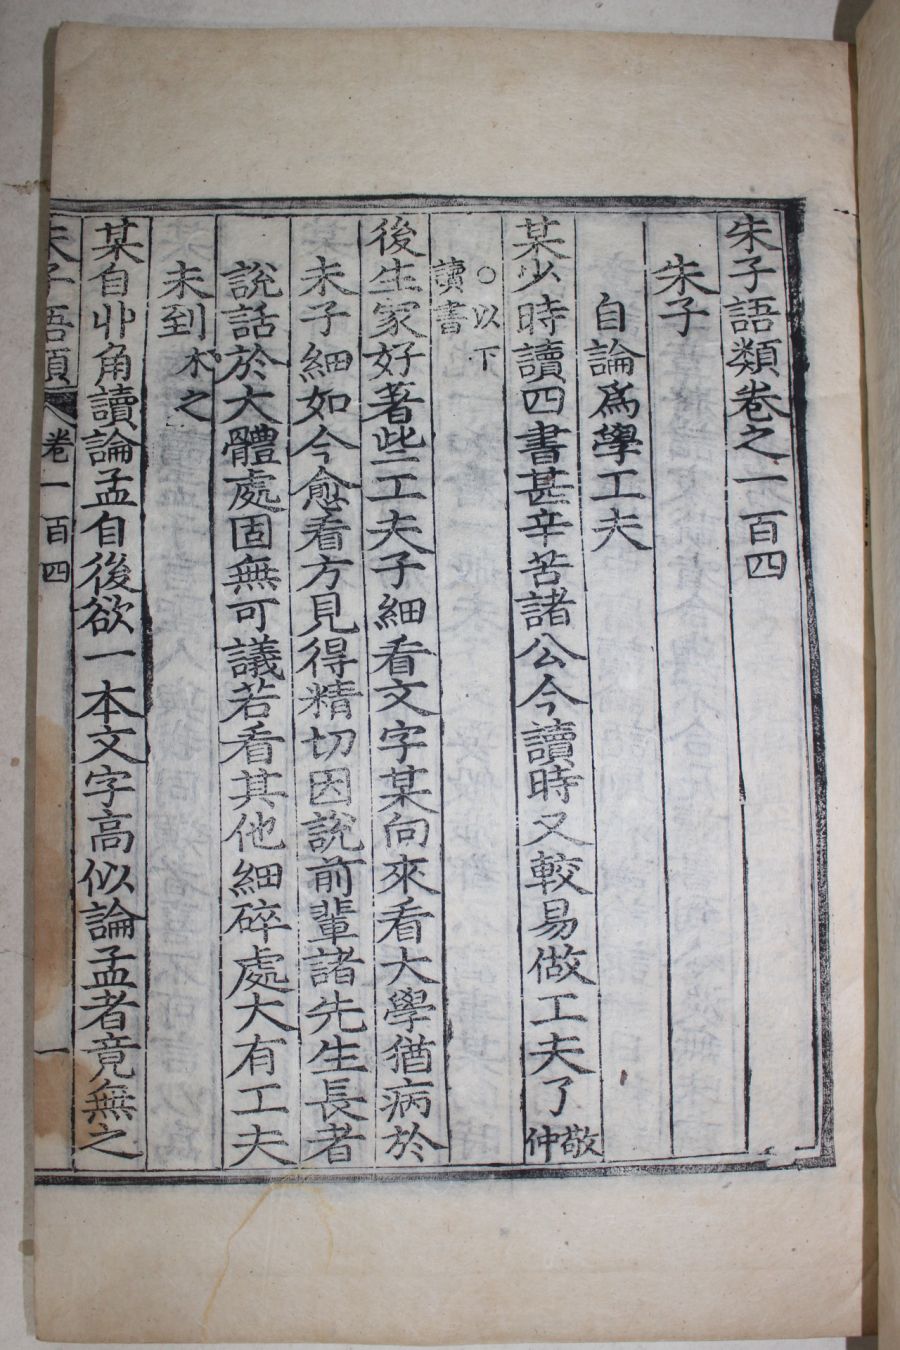 朱子語類卷之一百四
朱子
自論爲學工夫
某少時讀四書甚辛苦諸公今讀時又較易做工夫了敬仲
○以下讀書
後生家好著些工夫子細看文字某向來看大學猶病於
未子細如今愈看方見得精切因說前輩諸先生長者
說話於大體處固無可議若看其他細碎處大有工夫
未到木之
某自丱角讀論孟自後欲一本文字高似論孟者竟無之
朱子語類 卷一百四 一